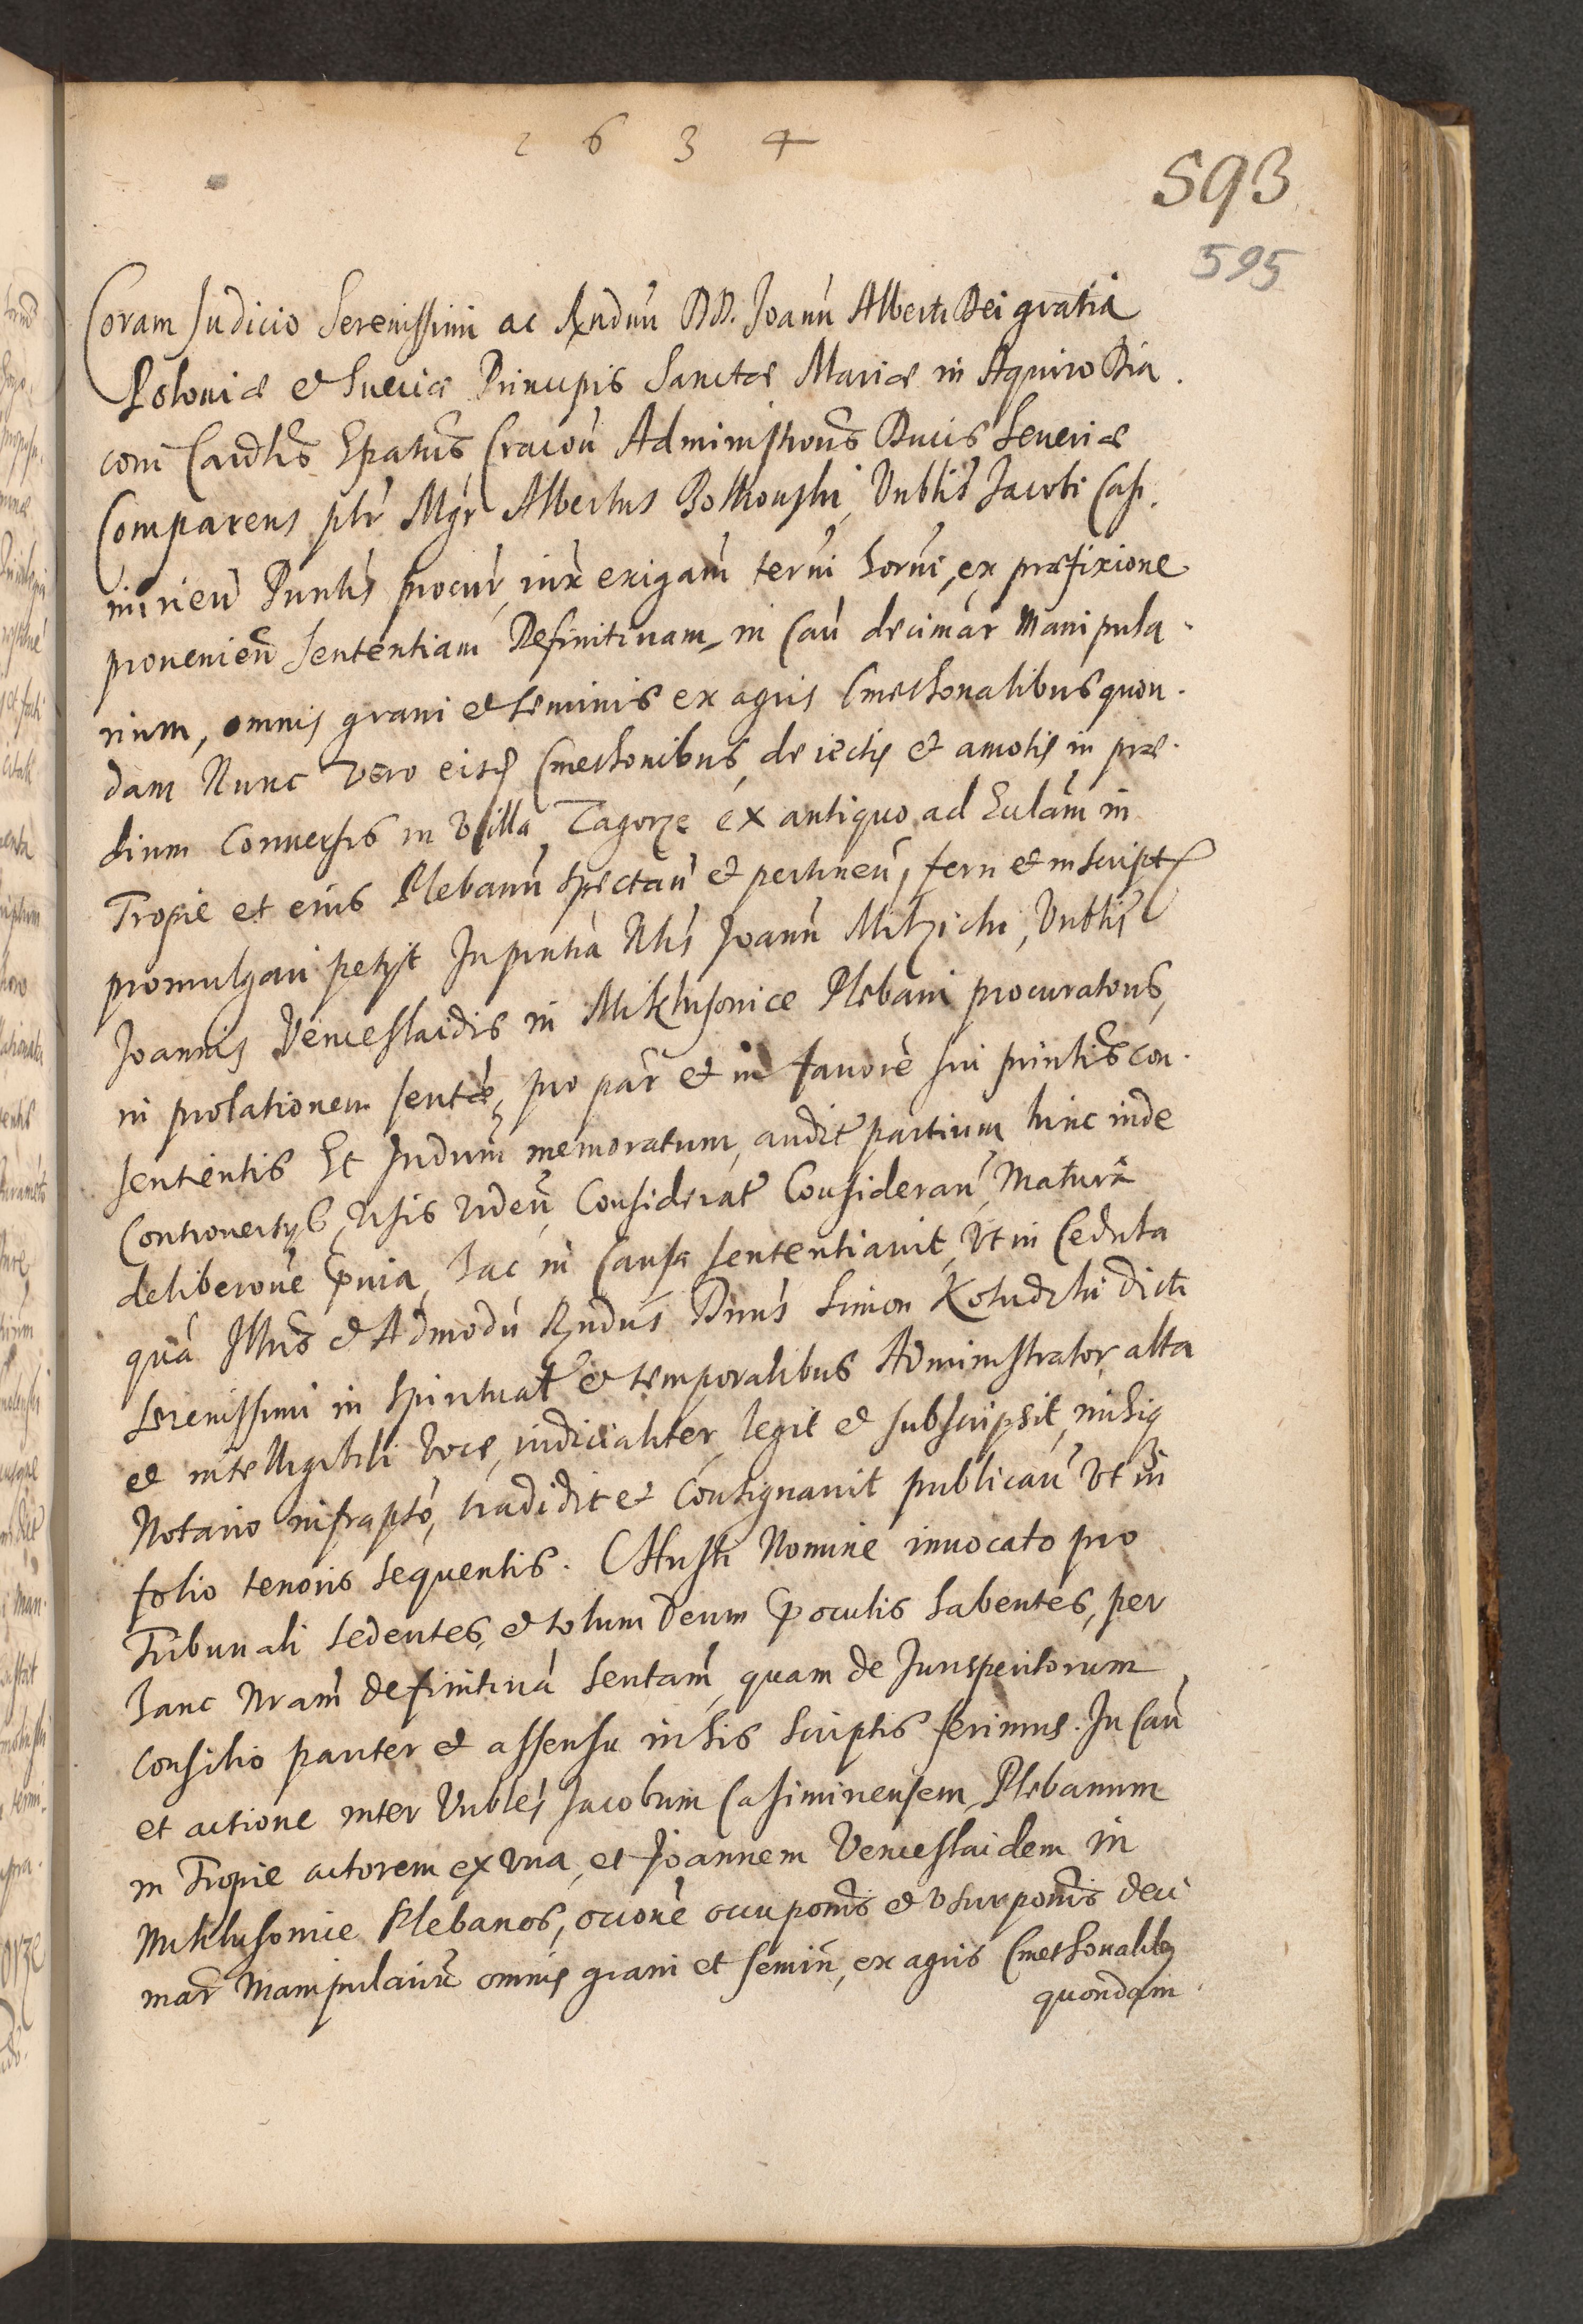 1634
593
595
Coram Judicio Serenissimi ac Rndmi DD. Joanñ Alberti Dei gratia
Poloniæ et Sueciæ Principis Sanctæ Mariæ in Aquiro Dia.
coni Cardlis Epatus Cracoũ Administroris Ducis Seueriæ
Comparens pltr Mgr Albertus Bolkowski, Vnblis Jacobi Casi.
miriẽn Pñntis procur, iux exigam termi horni, ex præfixione
prouenieñ Sententiam Definitiuam, in Cau decimar Manipula.
rium, omnis grani et seminis ex agris Cmethonalibus quon.
dam Nunc vero eisd Cmethonibus, deiectis et amotis in præ.
dium Conuersis in Villa Zagorze ex antiquo ad Eclam in
Tropie et eius Plebanũ spectañ et pertineñ, ferri et in script
promulgari petyt In pñtia Nlis Joanñ Milzicki, Vnblis
Joannis Venceslaidis in Mikluszouice Plebani procuratoris,
in prolationem sentæ, pro par et in fauorẽ sui prinlis con.
sentientis Et Judm memoratum, audit partium hinc inde
Controuersys, Visis videñ Considerat Considerañ, Matura
deliberoñe pruia, hac in Causa sententiauit, Vt in Cedula
quã Illris et Admodũ Rndus Dnus Simon Koludzki dicti
Serenissimi in Spiritual et temporalibus Administrator alta
et intelligibili voce, iudicialiter, legit et subscripsit, mihiq
Notario infrapto, tradidit et Consignauit publicañ Vt in
folio tenoris sequentis. CHristi Nomine inuocato pro
Tribunali sedentes, et solum Deum præ oculis habentes, per
hanc Nram definitiuã Sentam, quam de Jurisperitorum
consilio pariter et assensu in his scriptis ferimus. In Cau
et actione inter Vnbles Jacobum Casimiriensem, Plebanum
in Tropie actorem ex vna, et Joannem Venceslaidem in
Mikluszouice Plebanos, occoñe occuponis et vsurponis deci
mar Manipulariũ omnis grani et semiñ, ex agris Cmethonalibq
quondam